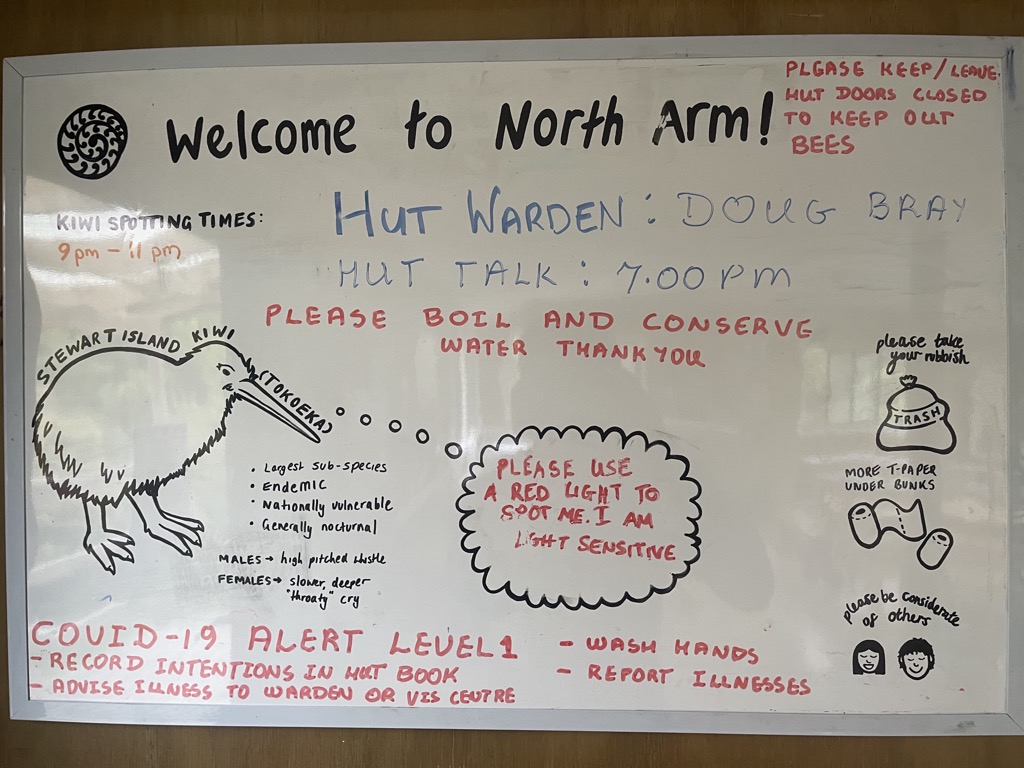 Welcome to North Arm!
PLEASE KEEP/LEAVE
HUT DOORS CLOSED
TO KEEP OUT
BEES
HUT WARDEN: DOUG BRAY
KIWI SPOTTING TIMES:
9pm - 11 pm
HUT TALK: 7.00 PM
PLEASE BOIL AND CONSERVE
WATER THANK YOU
STEWART ISLAND KIWI
(TOKOEKA)
• Largest sub-species
• Endemic
• Nationally vulnerable
• Generally nocturnal
MALES → high pitched whistle
FEMALES → slower, deeper
"throaty" cry
PLEASE USE
A RED LIGHT TO
SPOT ME. I AM
LIGHT SENSITIVE
please take
your rubbish
TRASH
MORE T-PAPER
UNDER BUNKS
please be considerate
of others
COVID-19 ALERT LEVEL 1
- RECORD INTENTIONS IN HUT BOOK
- ADVISE ILLNESS TO WARDEN OR VIS CENTRE
- WASH HANDS
- REPORT ILLNESSES